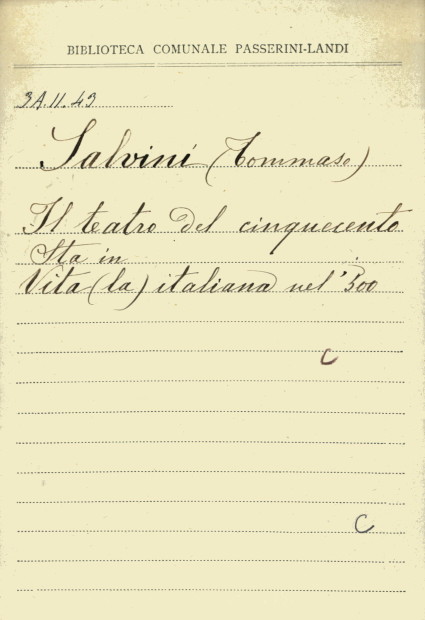 BIBLIOTECA COMUNALE PASSERINI-LANDI
3A.11.43
Salvini (Tommaso)
Il teatro del cinquecento
Sta in
Vita (la) italiana nel '300
C
C